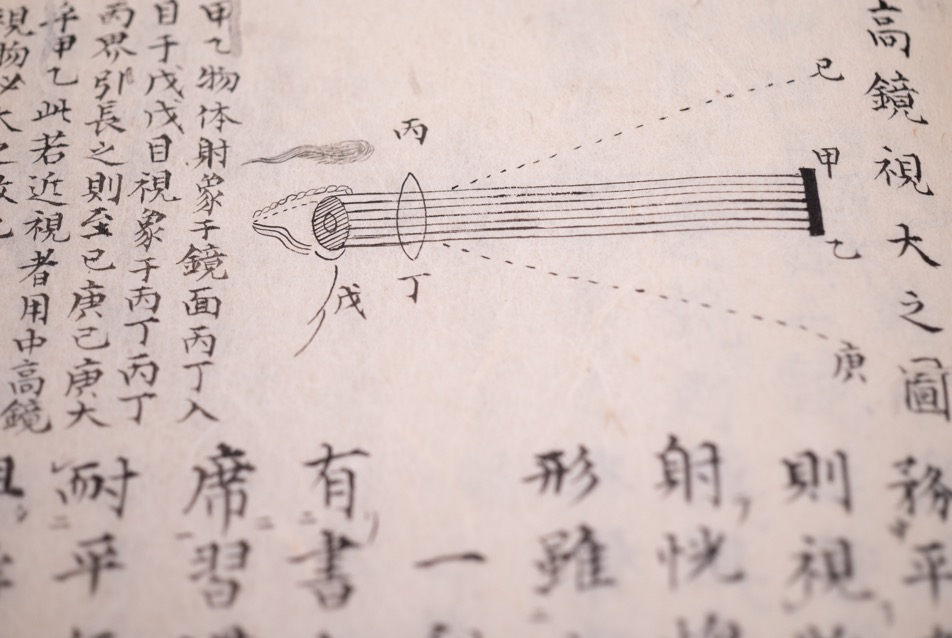 高鏡視大之圖
已
甲
乙
庚
丙
丁
戊
甲乙物体射象于鏡面丙丁入
目于戊戊目視象于丙丁丙丁
丙界引長之則至已庚已庚大
乎甲乙此若近視者用中高鏡
視物必大之故也
務平
則視
射恍
形雖
一
有書
席習
耐平